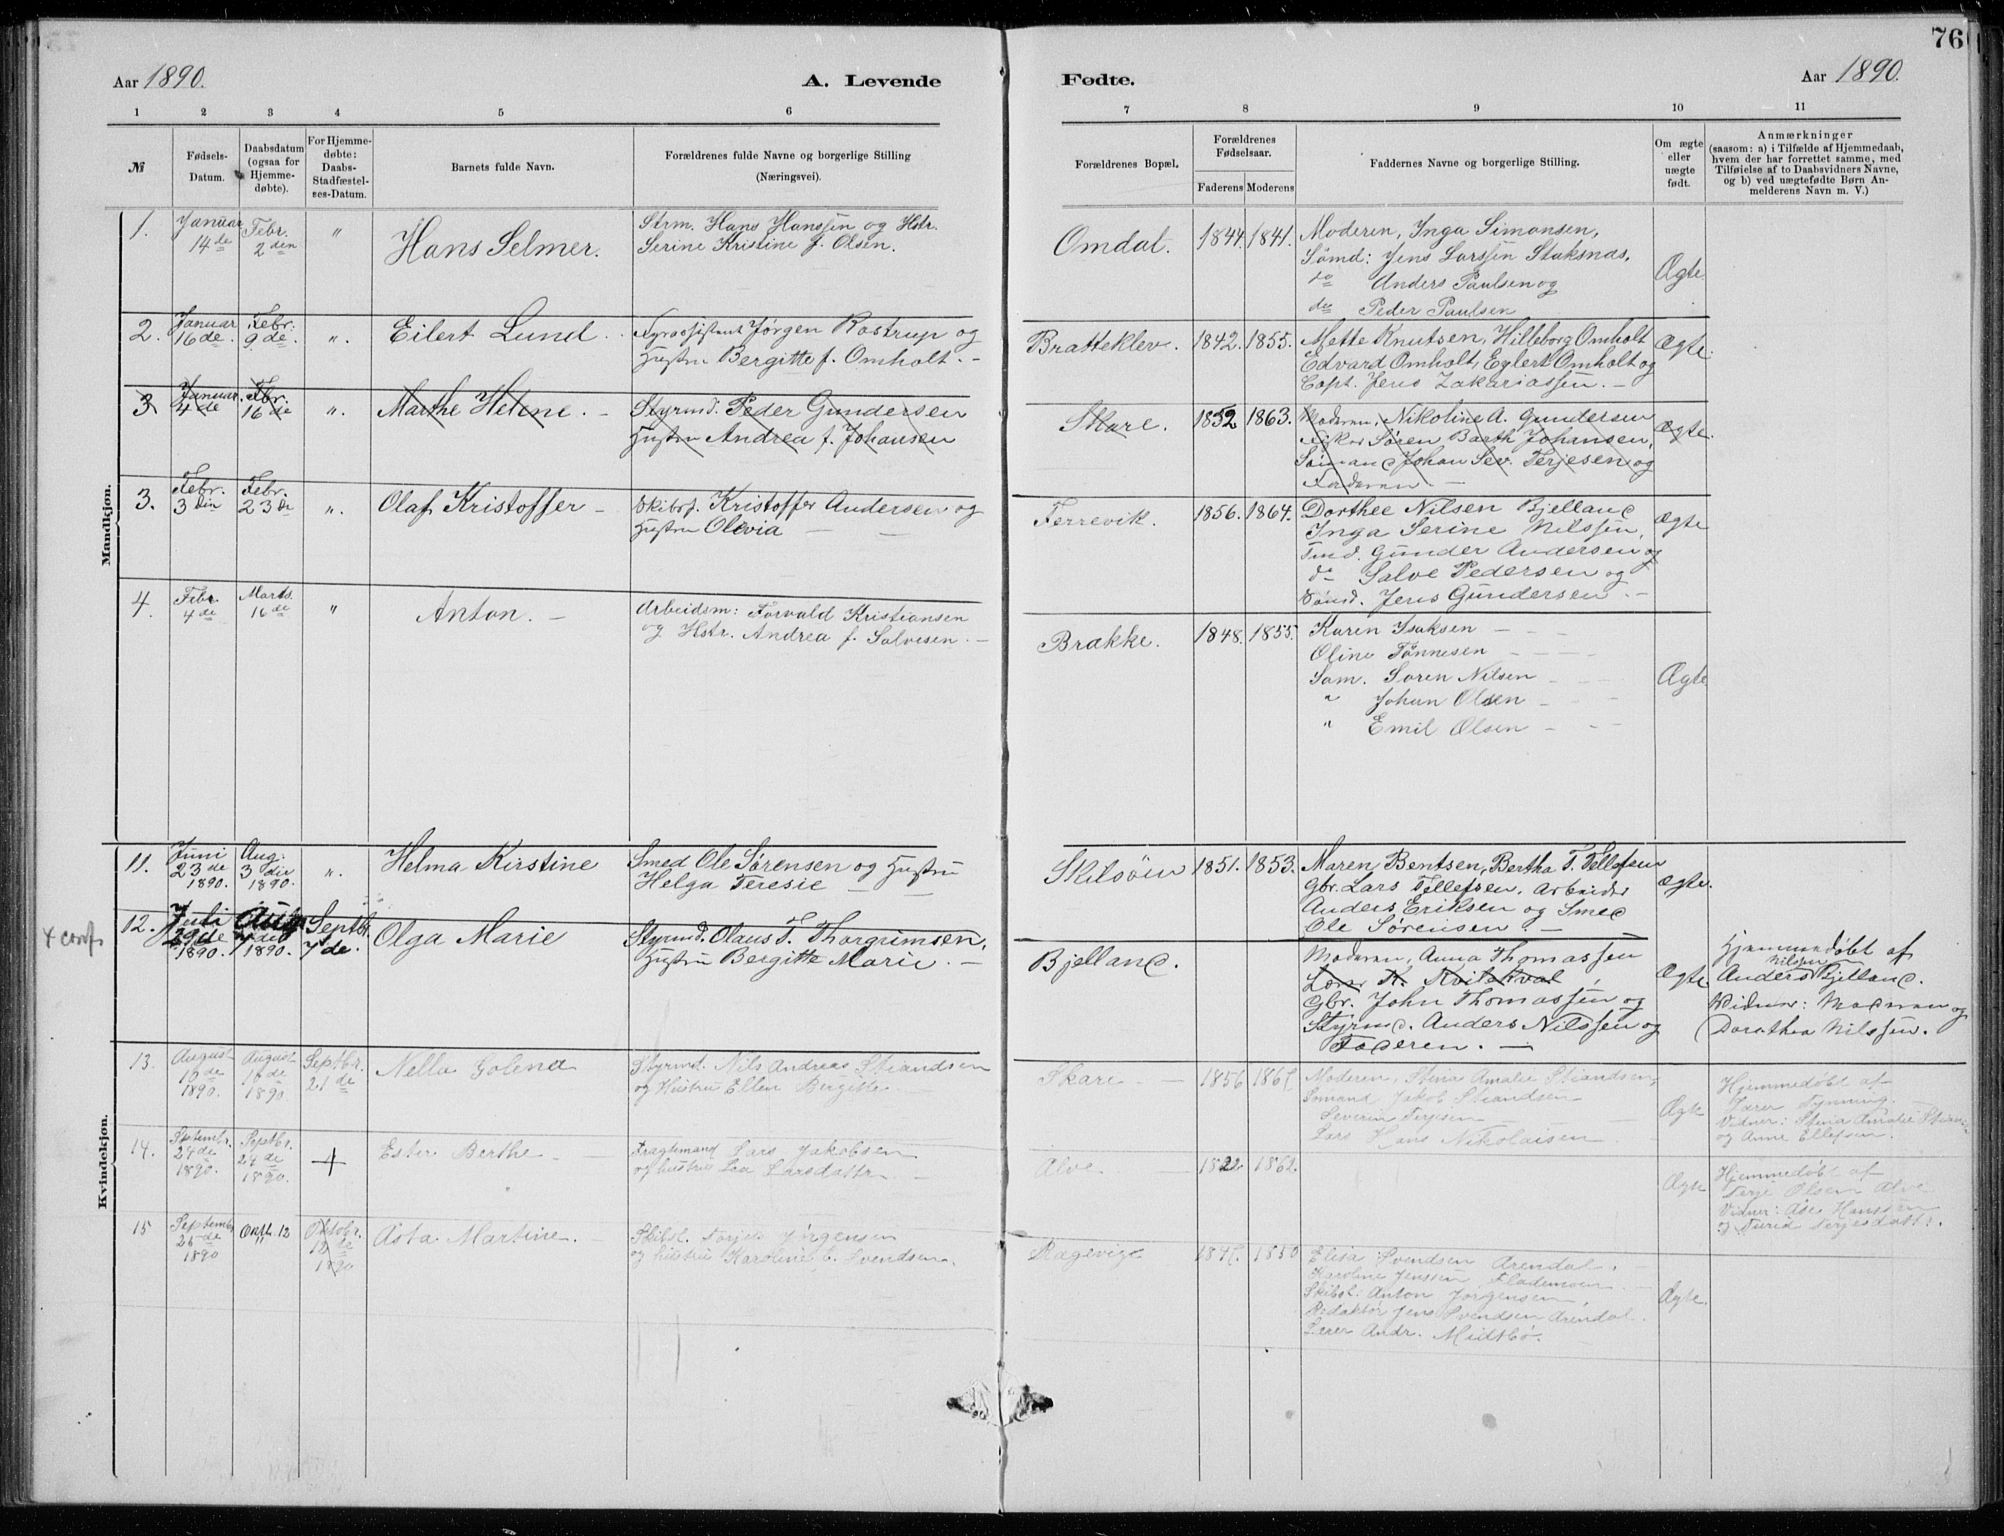 76
Aar 1890.
A. Levende
Fødte.
Aar 1890.
1 2 3 4 5 6 7 8 9 10 11
№
Fødsels-
Datum.
Daabsdatum
(ogsaa for
Hjemme-
døbte).
For Hjemme-
døbte:
Daabs-
Stadfæstel-
ses-Datum.
Barnets fulde Navn.
Forældrenes fulde Navne og borgerlige Stilling
(Næringsvei).
Forældrenes Bopæl.
Forældrenes
Fødselsaar.
Faderens
Moderens
Faddernes Navne og borgerlige Stilling.
Om ægte
eller
uægte
født.
Anmærkninger
(saasom: a) i Tilfælde af Hjemmedaab,
hvem der har forrettet samme, med
Tilføielse af to Daabsvidners Navne,
og b) ved uægtefødte Børn An-
melderens Navn m. V.)
Mandkjøn.
1.
Januar
14 de
Febr.
2 den
"
Hans Selmer.
Strm. Hans Hanssen og Hstr.
Serine Kristine f. Olsen.
Omdal.
1844.
1841.
Moderen, Inga Simonsen,
Sømd: Jens Larssen Staksnas,
do Anders Paulsen og
do Peder Paulsen
Ægte
2.
Januar
16 de.
Febr:
9 de.
".
Eilert Lund.
Fyrassistent Jørgen Rostrup og
Hustru Bergitte f. Omholt. -
Bratteklev.
1842.
1855.
Mette Knutsen, Hilleborg Omholt
Edvard Omholt, Eglert Omholt og
Capt. Jens Zakariassen. -
Ægte.
3
Januar
4 de
Febr.
16 de
".
Marthe Helene. -
Styrmd. Peder Gundersen
Hustru Andrea f. Johansen
Skare.
1852
1863.
Moderen, Nikoline A. Gundersen
Fisker Søren Barth Johansen,
Sømand Johan Sev. Terjesen og
Faderen. -
Ægte.
3.
Febr.
3 din
Febr.
23 de
".
Olaf Kristoffer -
Skibsf. Kristoffer Andersen og
Hustru Olevia - -
Ferrevik.
1856.
1864.
Dorthee Nilsen Bjelland
Inga Serine Nilssen,
Tmd. Gunder Andersen og
do Salve Pedersen og
Sømd. Jens Gundersen. -
Ægte
4.
Febr.
4 de
Marts.
16 de
"
Anton. -
Arbeidsm: Torvald Kristiansen
og Hstr. Andrea f. Salvesen. -
Brække.
1848.
1855.
Karen Isaksen - -
Oline Tønnesen - - -
Søm. Søren Nilsen - - -
" Johan Olsen - -
" Emil Olsen - -
Ægte
Kvindekjøn.
11.
Juni
23 de
1890.
Aug:
3 die
1890.
".
Helma Kirstine
Smed Ole Sørensen og Hustru
Helga Teresie - -
Skilsøen
1851.
1853.
Maren Bentsen, Bertha T. Tellefsen
Gbr. Lars Tellefsen, Arbeider
Anders Eriksen og Smed
Ole Sørensen. -
Ægte.
x conf.
12.
Juli
29 de
1890.
Aug
1890.
Septbr.
7 de.
Olga Marie
Styrmd. Olaus T. Thorgrimsen,
Hustru Bergitte Marie. -
Bjelland.
Moderen, Anna Thomassen
Lærer K. Kvitekval,
Gbr. John Thomassen og
Styrmd. Anders Nilssen og
Faderen. -
Ægte
Hjemmedøbt af
Nilssen
Anders Bjelland.
Vidner: Madman og
Dorothea Nilssen.
13.
August
10 de
1890.
August
10 de
1890.
Septbr.
21 de
Nella Golena
Styrmd. Nils Andreas Stiandsen
og Hustru Ellen Bergitte -
Skare -
1856
Moderen, Stina Amalie Stiandsen,
Sømand Jakob Stiandsen
Severin Terjesen -
Lars Hans Nikolaisen
Ægte
Hjemmedøbt af
Lærer Tynning. -
Vidner: Stina Amalie Stian-
og Anne Ellefsen.
14.
Septembr.
24 de
1890.
Septbr.
24 de
1890.
+
Ester Berthe - -
Fragtemand Lars Jakobsen
og hustru Lea Larsdattr. -
Alve -
1822
1862.
Ægte
Hjemmedøbt af
Terje Olsen Alve
Vidner: Åse Hanssen
og Turid Terjesdattr.
15
Septembr
26 de
1890
12
Oktobr.
12 de
1890
Asta Martine. -
Skibsf. Torjus Jørgensen
og hustru Karoline f. Svendsen.
Ragevige
1847.
1850
Elisa Svendsen Arendal, -
Karoline Jenssen Flademoen -
Skibsf: Anton Jørgensen,
Redaktør Jens Svendsen Arendal.
Lærer Andr. Midtbø.
Ægte.